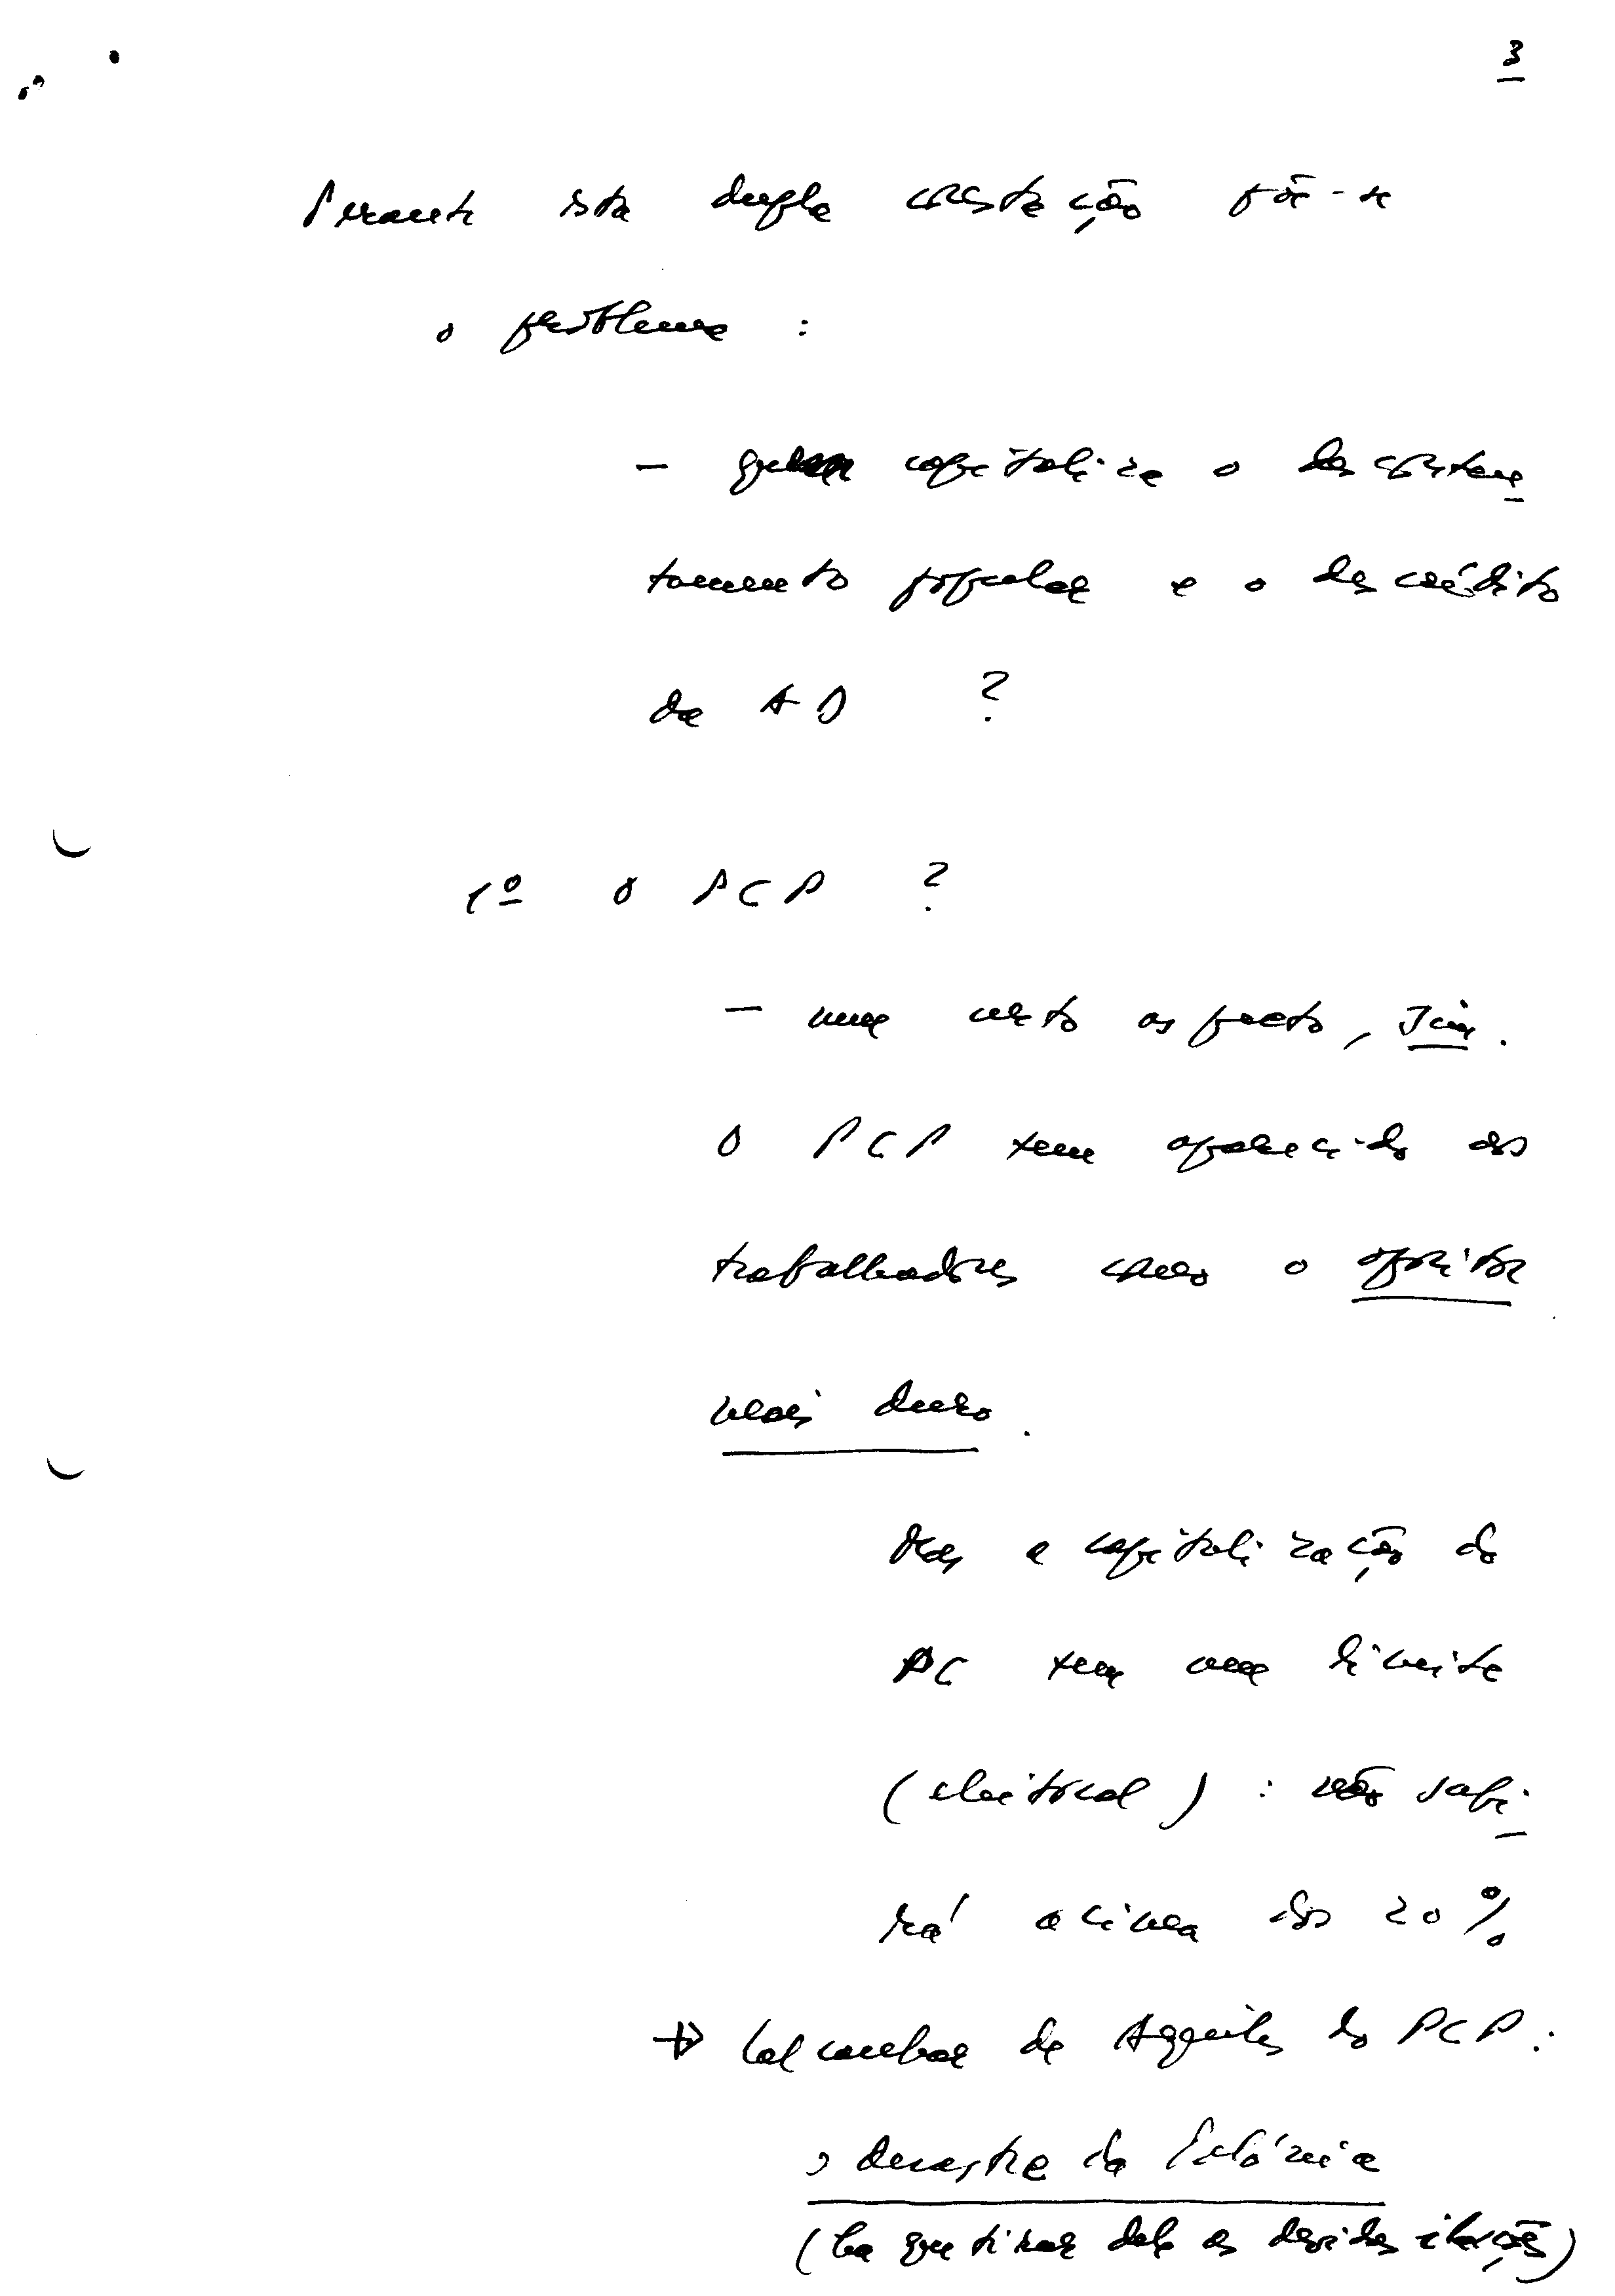 3
Perante esta dupla constatação põe-se
o problema :
- quem capitaliza o descorten
tamento popular e o descrédito
da AD ?
1º O PCP ?
- num certo aspecto, sim.
O PCP tem aparecido aos
trabalhadores como o opositor
mais duro.
Mas a capitalização do
PC tem um limite
(eleitoral) : não subi-
rá acima dos 20%
→ Calcanhar de Aquiles do PCP :
o desastre da Polónia
(há que tirar dele as devidas ilações)